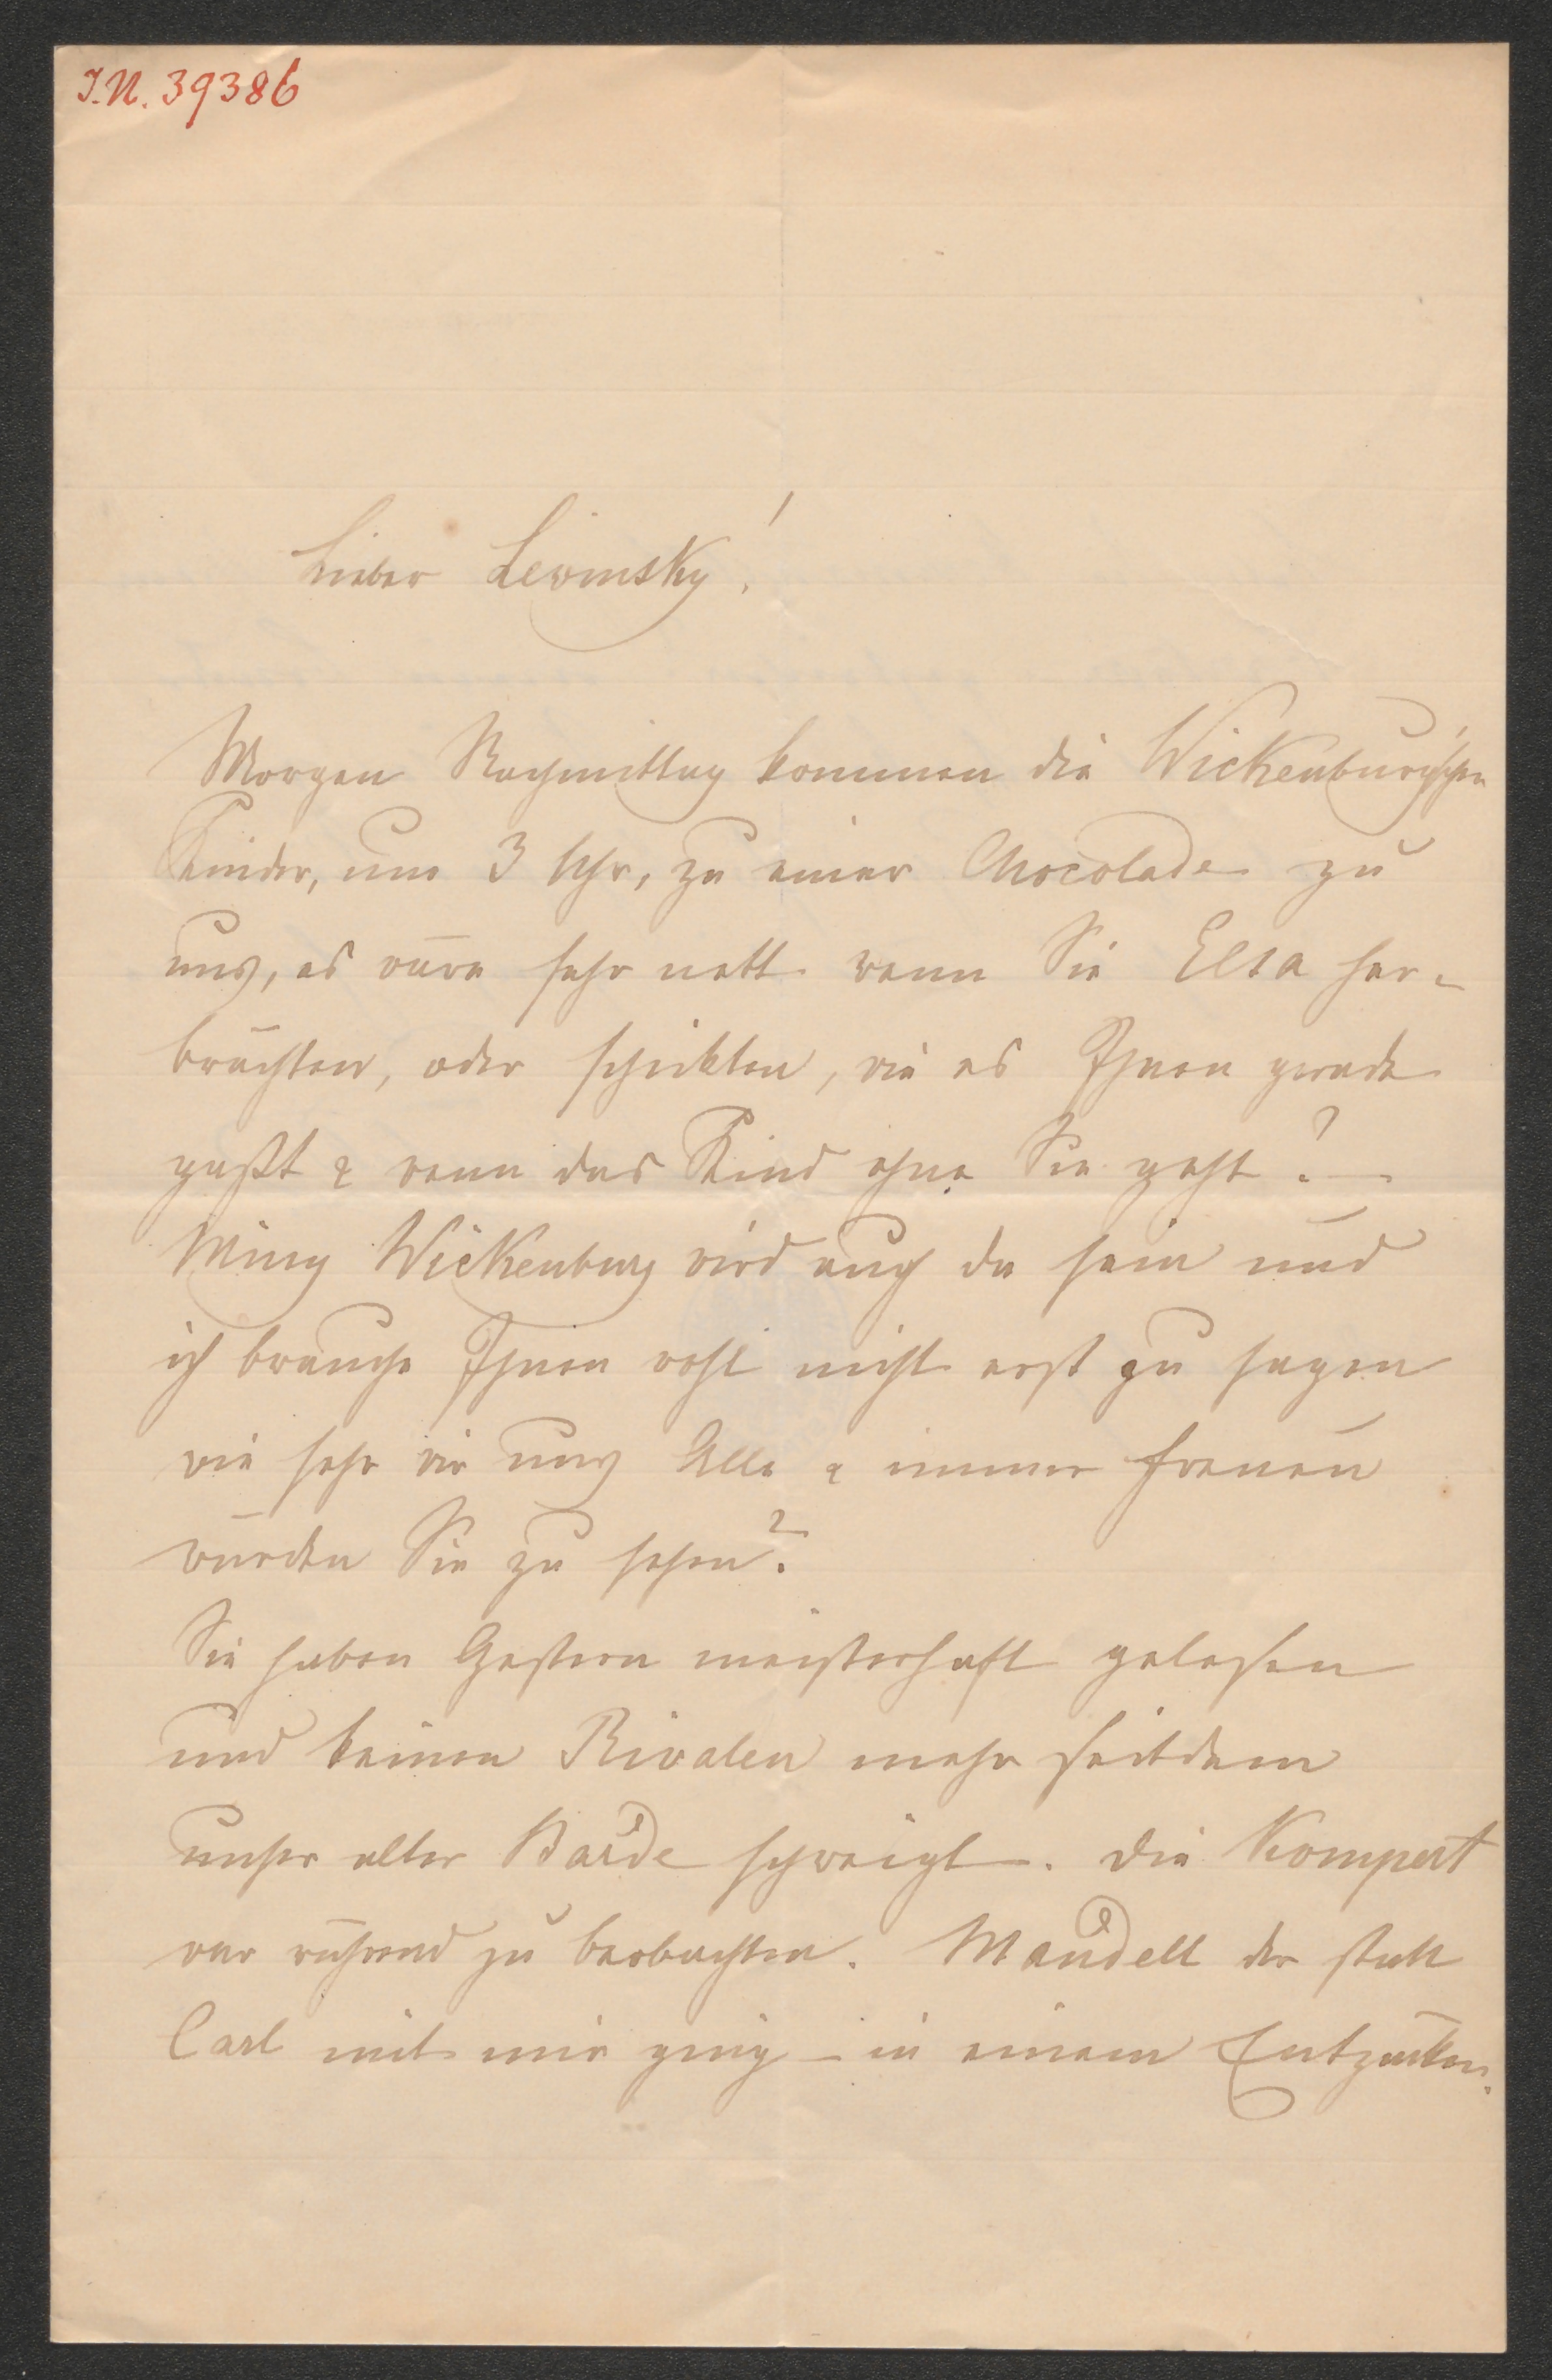 I.N. 39386
Lieber Lewinsky!
Morgen Nachmittag kommen die Wickenburg'schen
Kinder, um 3 Uhr, zu einer Chocolade zu
uns, es wäre sehr nett wenn Sie Elsa her-
brächten, oder schickten, wie es Ihnen gerade
paßt & wenn das Kind ohne Sie geht? –
Miny Wickenburg wird auch da sein und
ich brauche Ihnen wohl nicht erst zu sagen
wie sehr wir uns Alle & immer freuen
würden Sie zu sehen?
Sie haben Gestern meisterhaft gelesen
und keinen Rivalen mehr seitdem
unser alter Barde schweigt. Die Kompert
war rührend zu beobachten. Mandell der statt
Carl mit mir ging – in einem Entzücken.